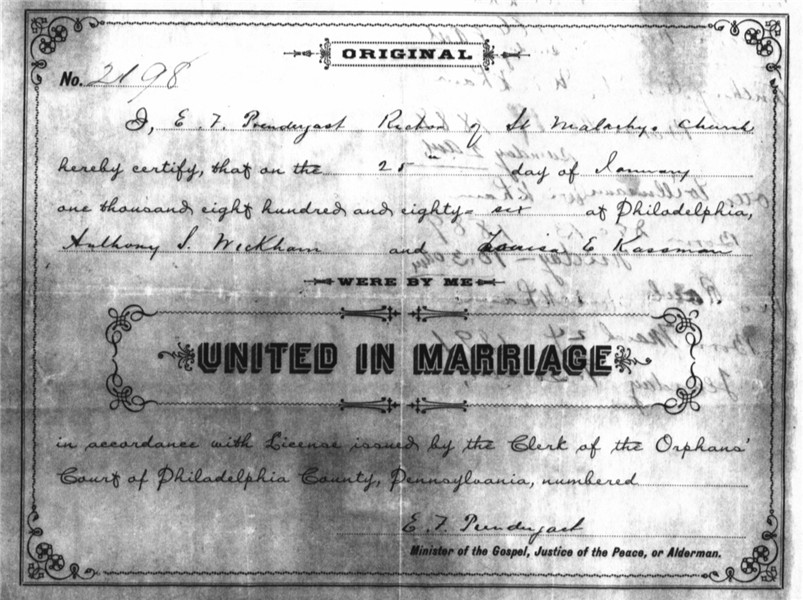 ORIGINAL
No. 2198
I, E. F. Prendergast Rector of St Malachy's Church
hereby certify, that on the 25" day of January
one thousand eight hundred and eighty-six at Philadelphia,
Anthony S. Wickham and Louisa E Kassman
WERE BY ME
UNITED IN MARRIAGE
in accordance with License issued by the Clerk of the Orphans'
Court of Philadelphia County, Pennsylvania, numbered
E. F. Prendergast
Minister of the Gospel, Justice of the Peace, or Alderman.